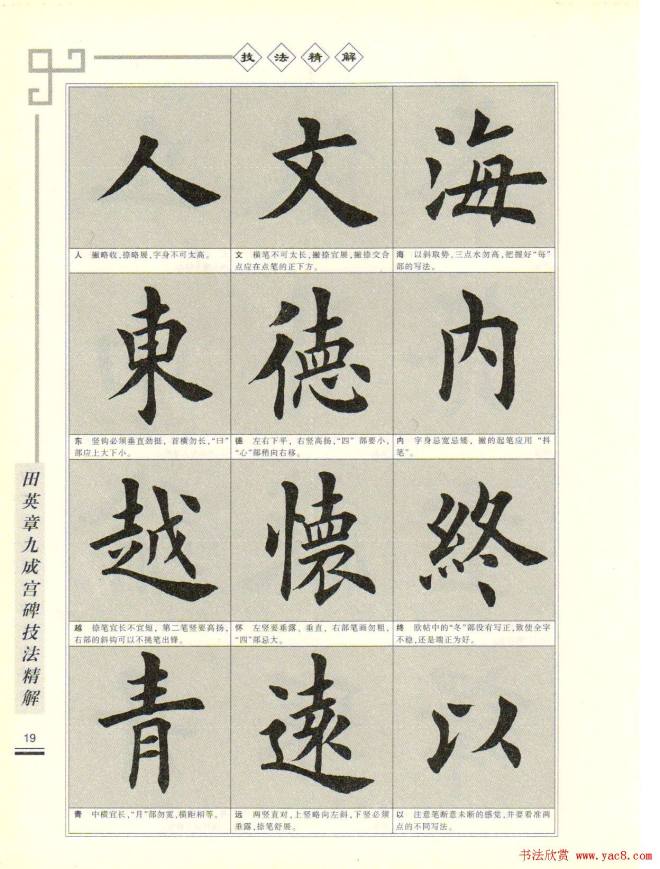 技法精解
人 文 海
人 撇略收,捺略展,字身不可太高。
文 横笔不可太长,撇捺宜展,撇捺交合
点应在点笔的正下方。
海 以斜取势,三点水勿高,把握好“每”
部的写法。
東 德 内
东 竖钩必须垂直劲挺,首横勿长,“曰”
部应上大下小。
德 左右下平,右竖高扬,“四”部要小,
“心”部稍向右移。
内 字身忌宽忌矮,撇的起笔应用“抖
笔”。
越 懷 終
越 捺笔宜长不宜短,第二笔竖要高扬,
右部的斜钩可以不挑笔出锋。
怀 左竖要垂露、垂直,右部笔画勿粗,
“四”部忌大。
终 欧帖中的“冬”部没有写正,致使全字
不稳,还是端正为好。
青 遠 以
青 中横宜长,“月”部勿宽,横距相等。
远 两竖直对,上竖略向左斜,下竖必须
垂露,捺笔舒展。
以 注意笔断意未断的感觉,并要看准两
点的不同写法。
田英章九成宫碑技法精解
19
书法欣赏 www.yac8.com